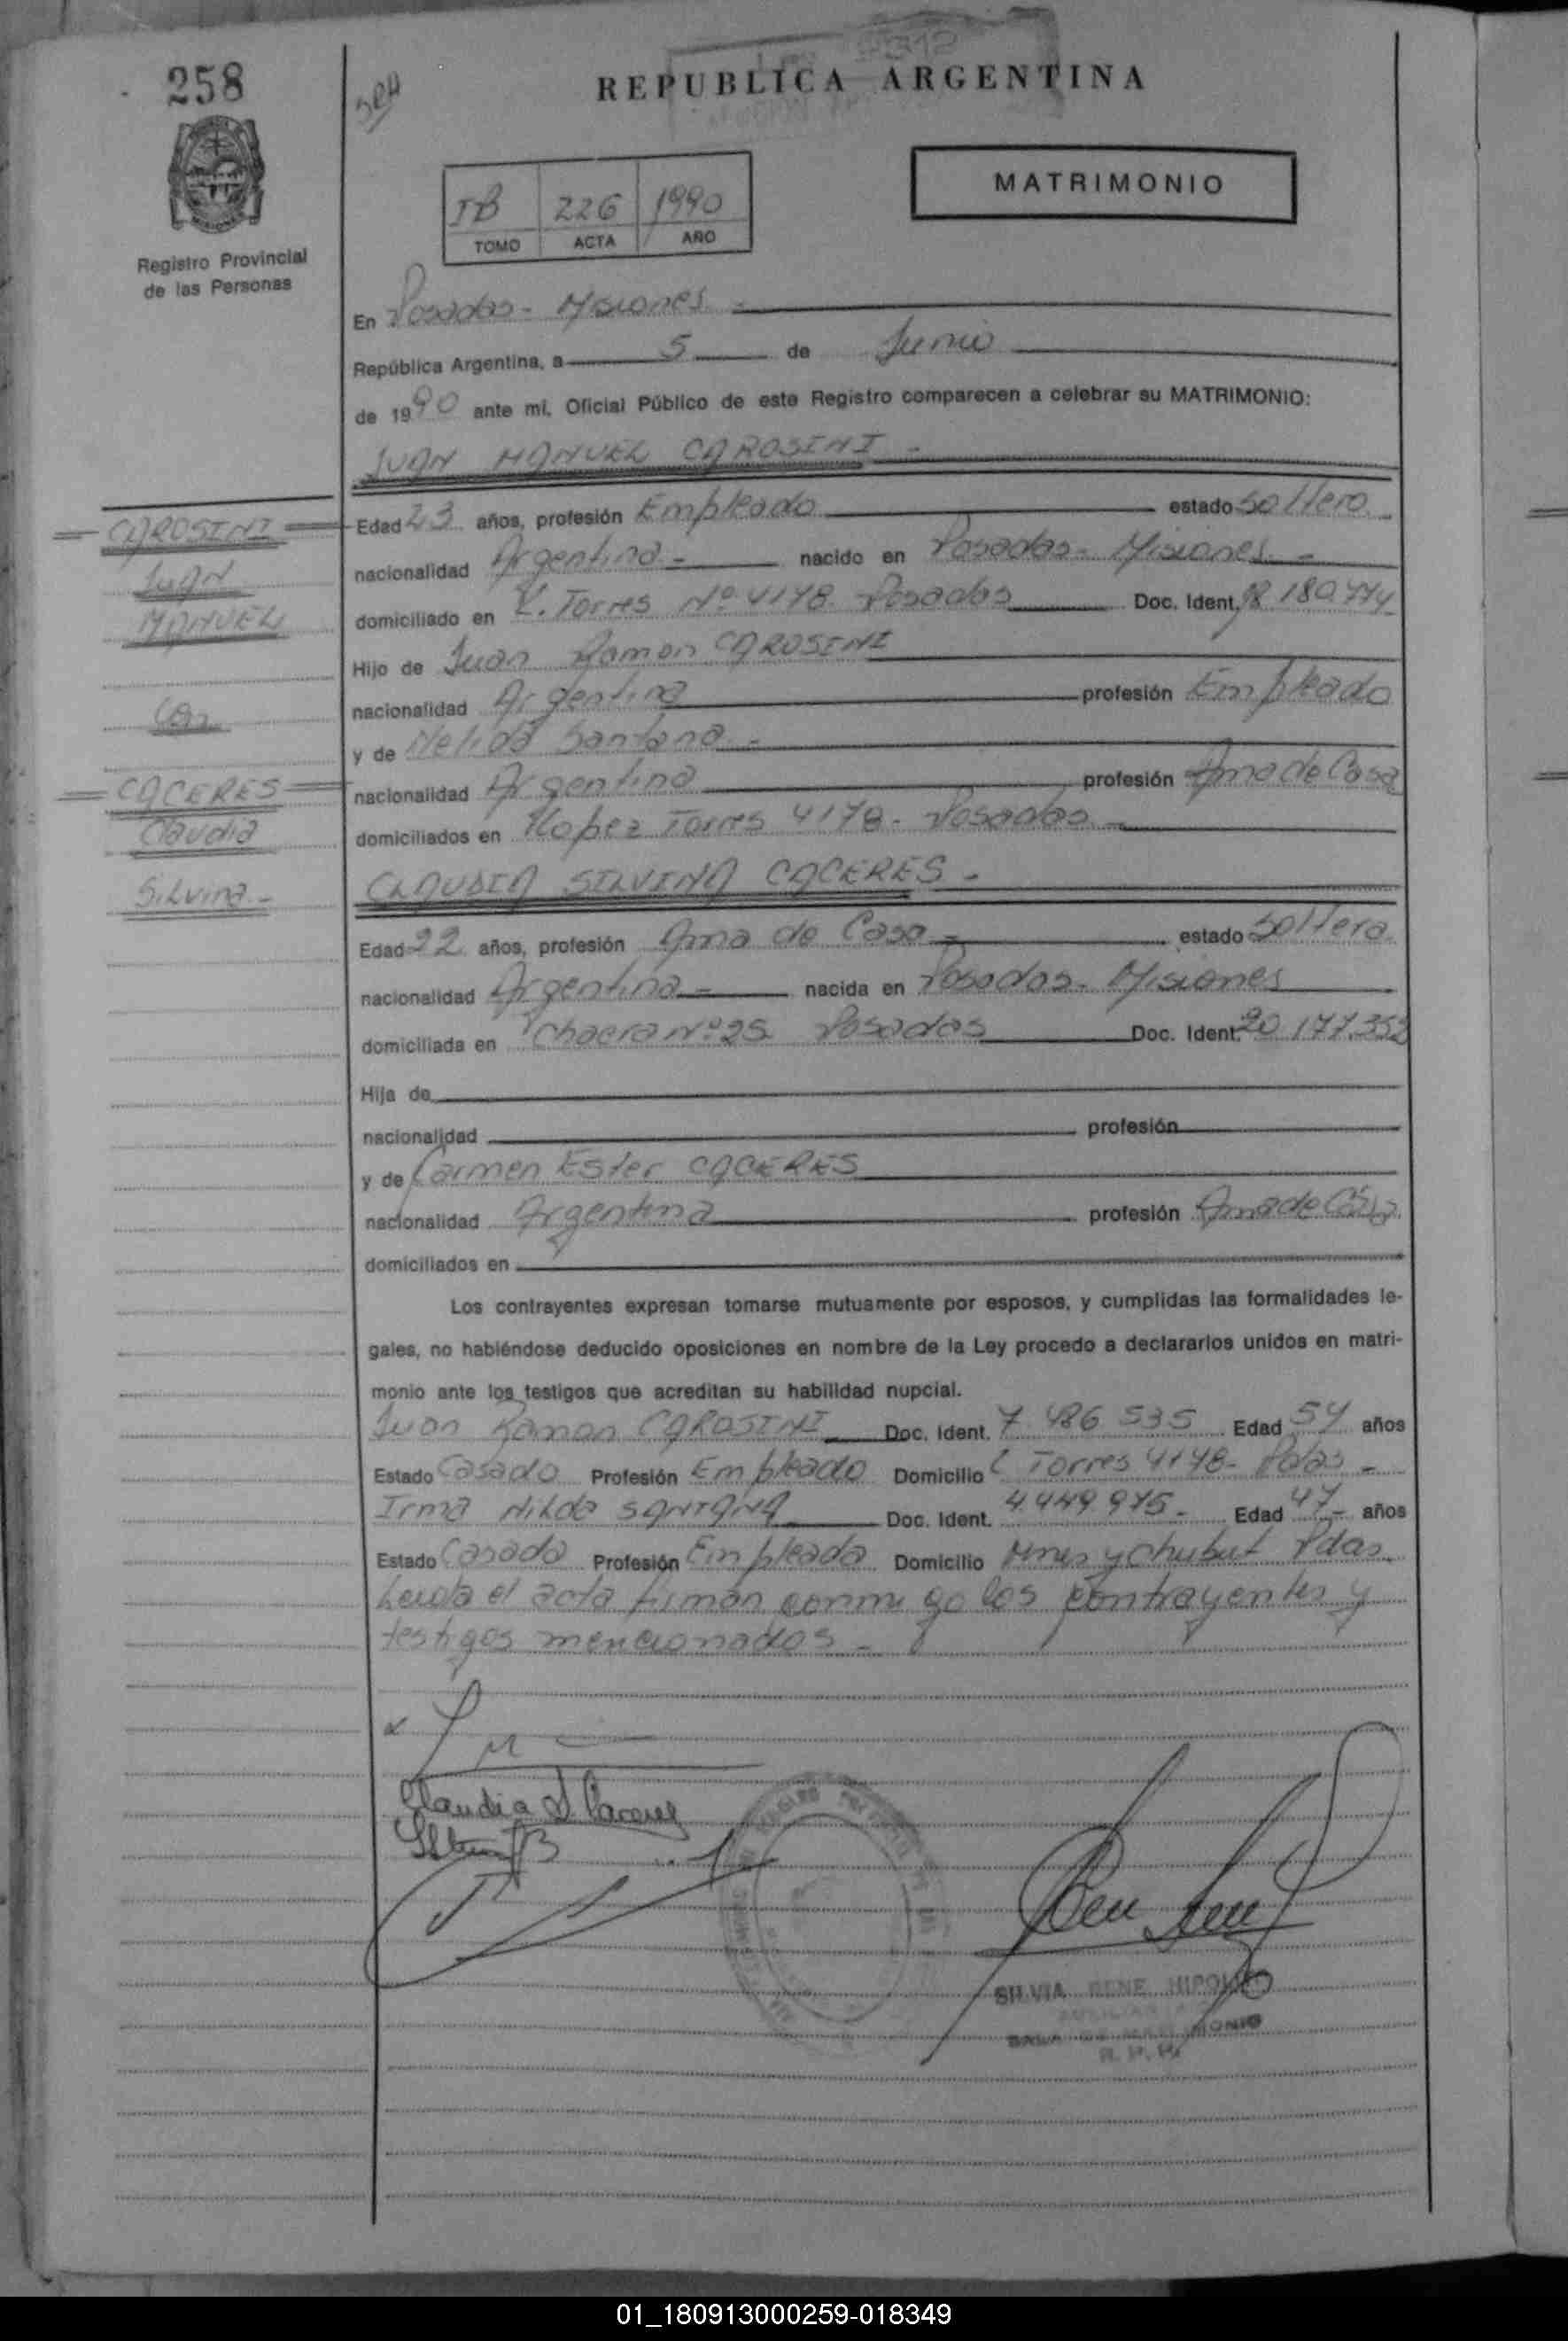 258
REPUBLICA ARGENTINA
MATRIMONIO
TB 226 1990
TOMO ACTA AÑO
Registro Provincial
de las Personas
En Posadas - Misiones -
República Argentina, a 5 de Junio
de 1990 ante mi, Oficial Público de este Registro comparecen a celebrar su MATRIMONIO:
JUAN MANUEL CAROSINI -
CAROSINI
JUAN
MANUEL
Con
CACERES
Claudia
Silvina -
Edad 23 años, profesión Empleado estado Soltero
nacionalidad Argentina - nacido en Posadas - Misiones -
domiciliado en L. Torres Nº 4178 Posadas Doc. Ident. 18.180.774
Hijo de Juan Ramon CAROSINI
nacionalidad Argentina profesión Empleado
y de Nelida Santana -
nacionalidad Argentina profesión Ama de Casa
domiciliados en Lopez Torres 4178 - Posadas -
CLAUDIA SILVINA CACERES -
Edad 22 años, profesión Ama de Casa - estado Soltera
nacionalidad Argentina - nacida en Posadas - Misiones
domiciliada en Chacra Nº 25 Posadas Doc. Ident. 20.177.352
Hija de
nacionalidad profesión
y de Carmen Ester CACERES
nacionalidad Argentina profesión Ama de Casa
domiciliados en
Los contrayentes expresan tomarse mutuamente por esposos, y cumplidas las formalidades le-
gales, no habiéndose deducido oposiciones en nombre de la Ley procedo a declararlos unidos en matri-
monio ante los testigos que acreditan su habilidad nupcial.
Juan Ramon CAROSINI Doc. Ident. 7.486.535 Edad 54 años
Estado Casado Profesión Empleado Domicilio L Torres 4178 - Pdas -
Irma Nilda SANTANA Doc. Ident. 4.449.975 - Edad 47 - años
Estado Casada Profesión Empleada Domicilio Mnes y Chubut Pdas
Leida el acta firman conmigo los contrayentes y
testigos mencionados -
Claudia S. Caceres
SILVIA RENE HIPOLITO
R. P. P.
01_180913000259-018349